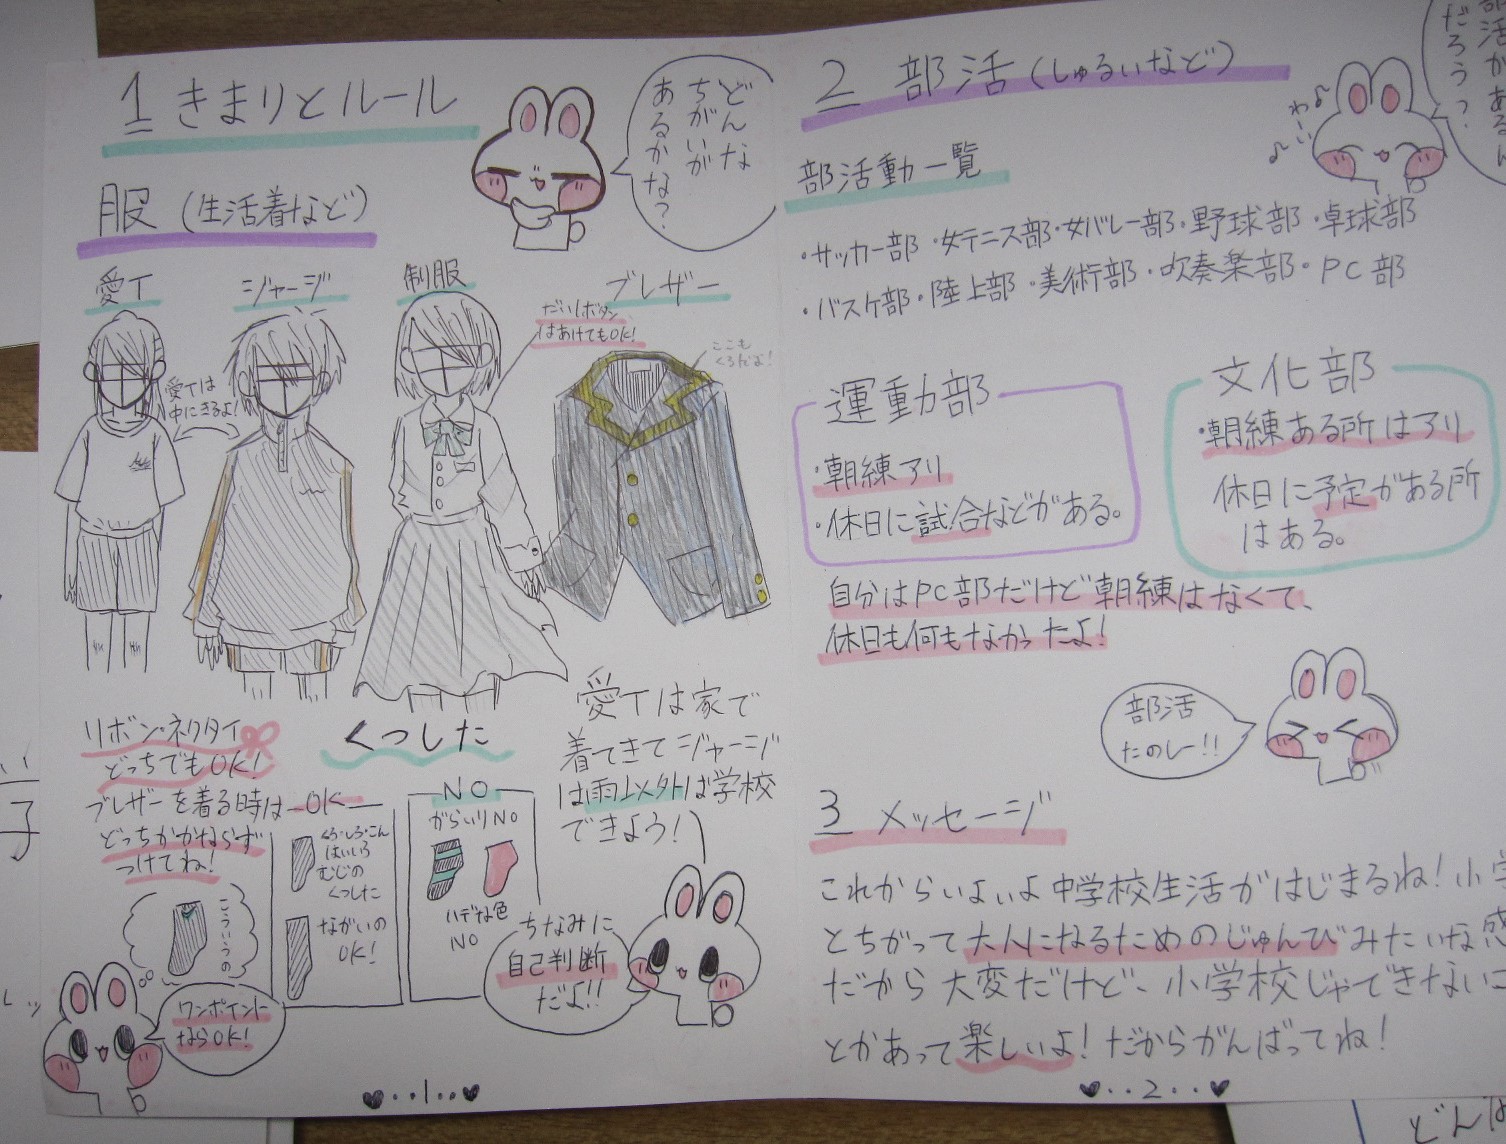 1 きまりとルール
どんな
ちがいが
あるかな？
服（生活着など）
愛T
ジャージ
制服
ブレザー
愛Tは
中にきるよ！
だい1ボタン
はあけてもOK！
ここも
くろだよ！
リボン・ネクタイ
どっちでもOK！
ブレザーを着る時は
どっちかかならず
つけてね！
こういうの
ワンポイント
ならOK！
くつした
OK
くろ・しろ・こん
はいいろ
むじの
くつした
ながいの
OK！
NO
がらいりNO
ハデな色
NO
愛Tは家で
着てきてジャージ
は雨以外は学校
できよう！
ちなみに
自己判断
だよ！！
1
2 部活（しゅるいなど）
わーい
だろう？
部活動一覧
・サッカー部・女テニス部・女バレー部・野球部・卓球部
・バスケ部・陸上部・美術部・吹奏楽部・PC部
運動部
・朝練アリ
・休日に試合などがある。
文化部
・朝練ある所はアリ
休日に予定がある所
はある。
自分はPC部だけど朝練はなくて、
休日も何もなかったよ！
部活
たのしー！！
3 メッセージ
これからいよいよ中学校生活がはじまるね！小学
とちがって大人になるためのじゅんびみたいな感
だから大変だけど、小学校じゃできないこ
とかあって楽しいよ！だからがんばってね！
2
どんな